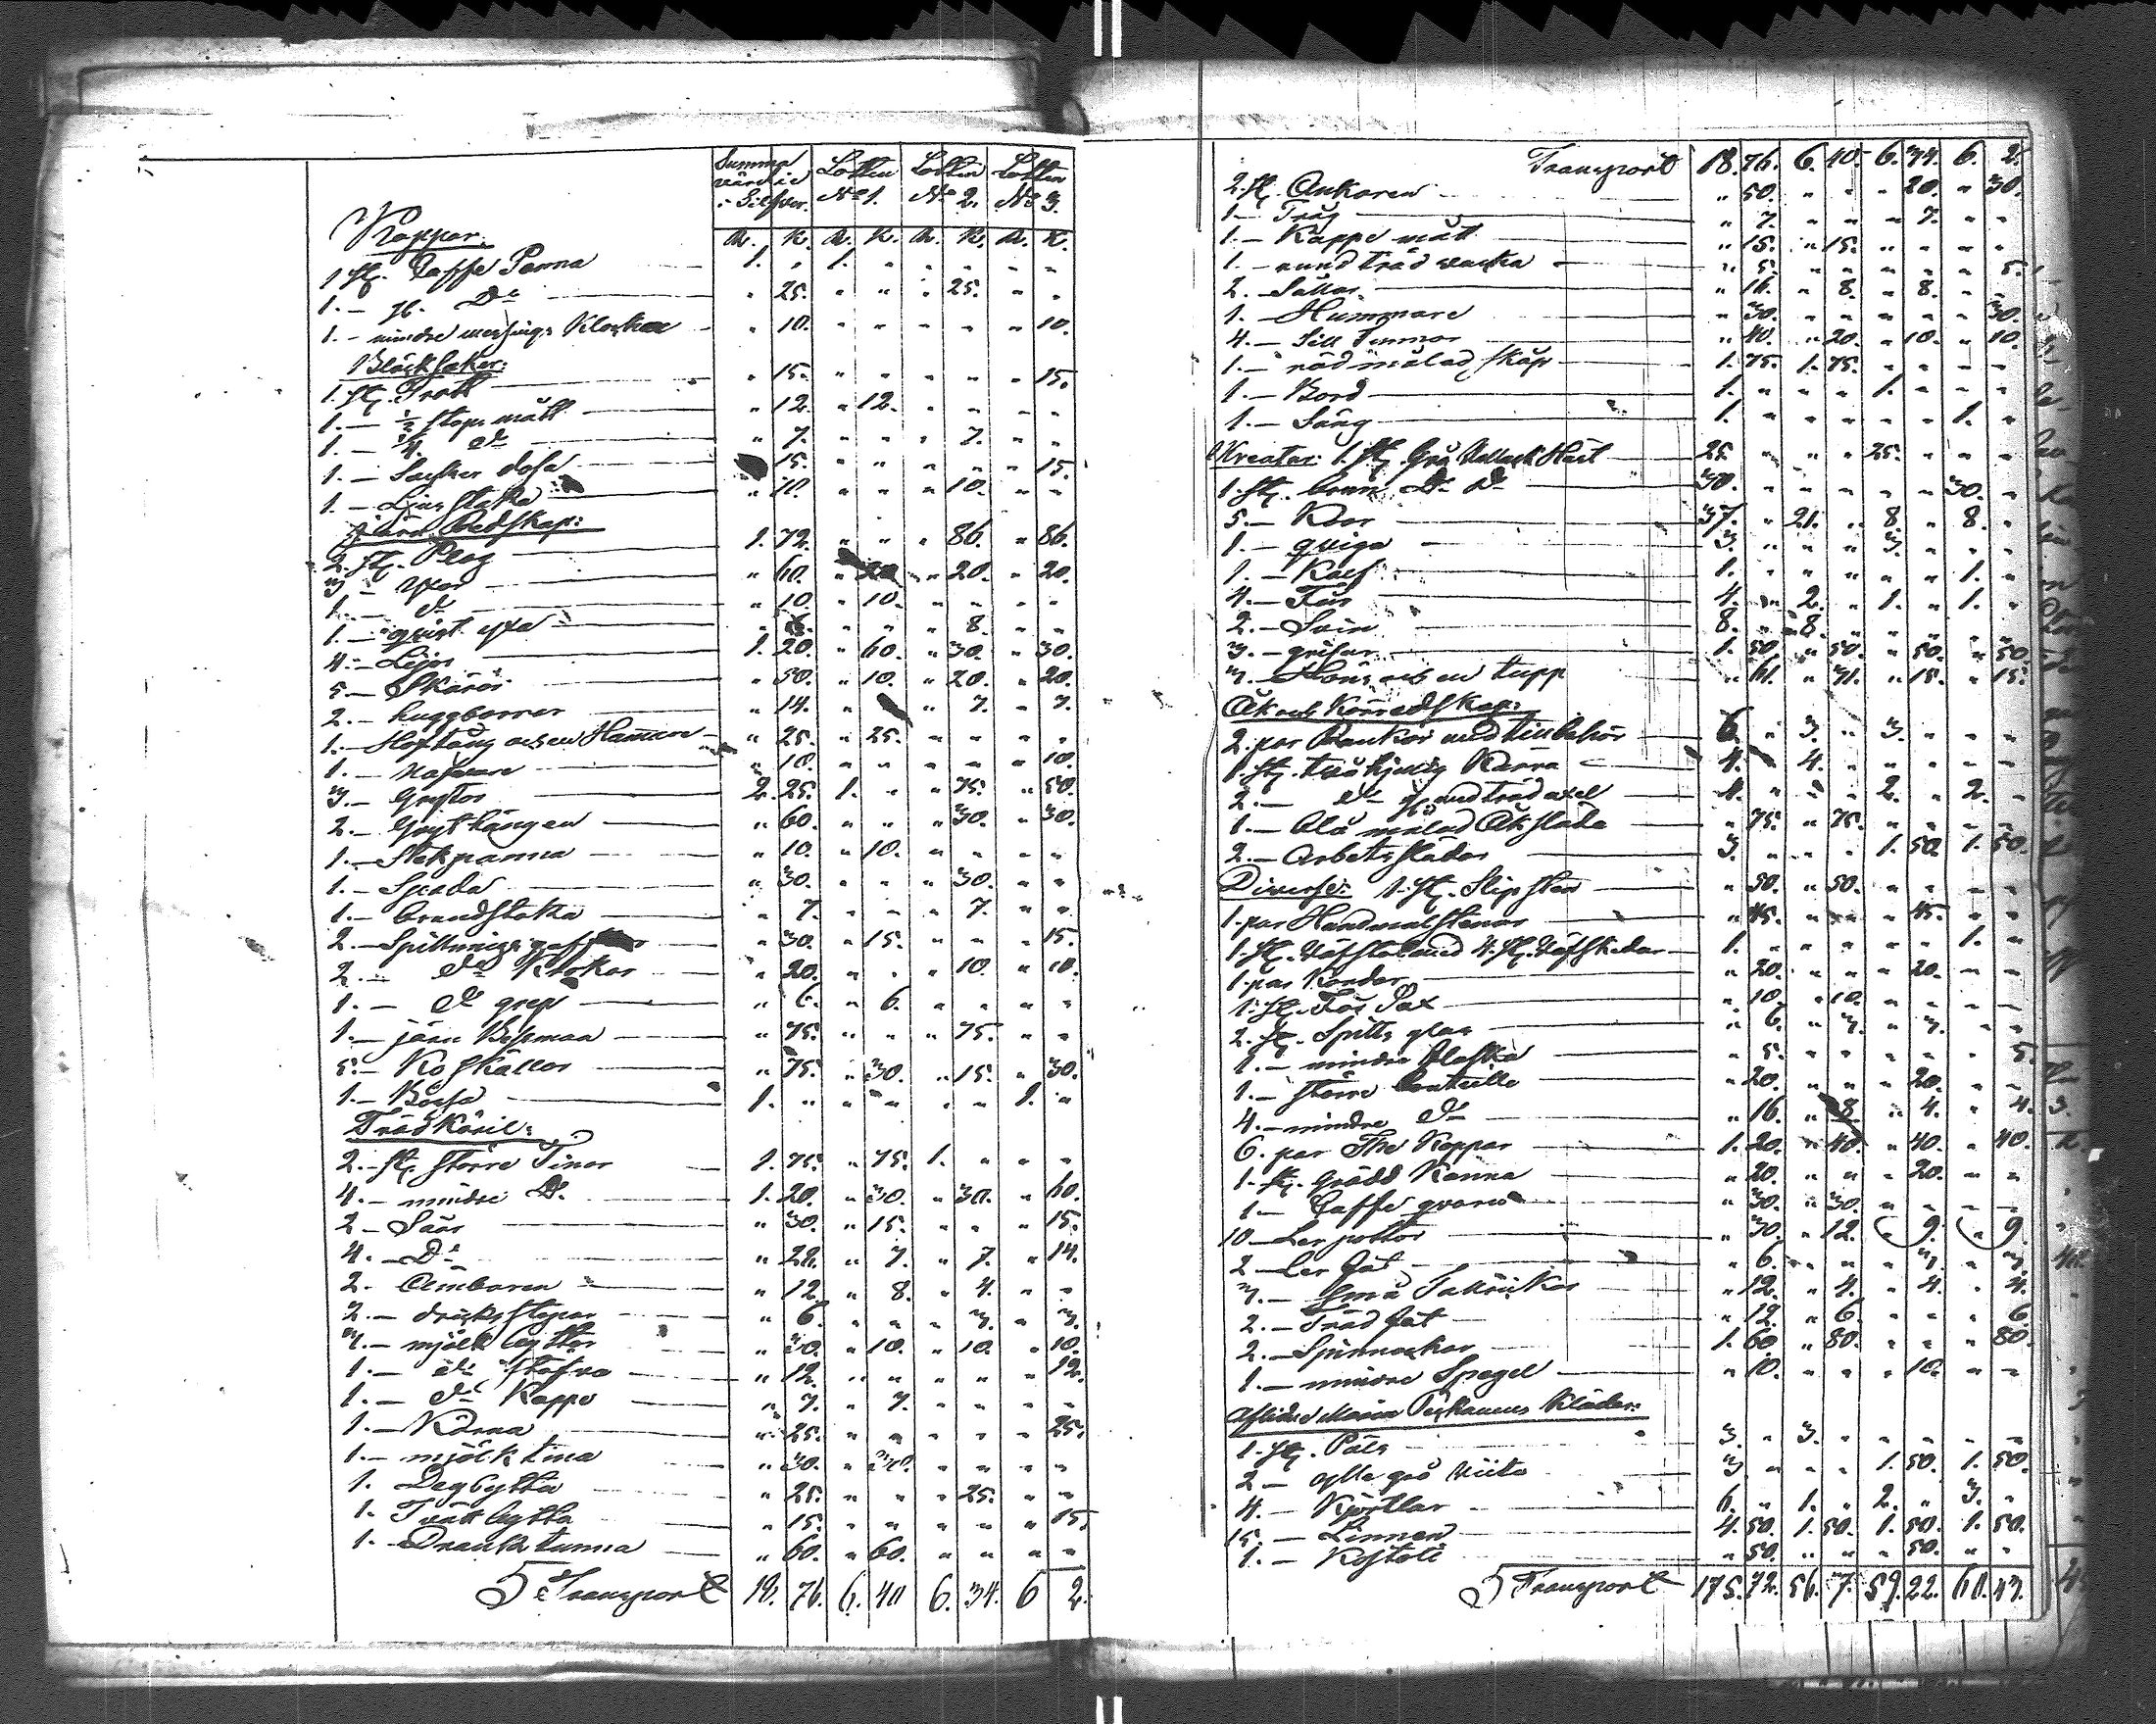 Summa Lotten Lotten Lotten
värde i N:o 1. N:o 2. N:o 3.
Silfver.
R. K. R. K. R. K. R. K.
Koppar.
1 st. Caffe Panna 1. " 1. " " " " "
1. — st. D:o " 25. " " " 25. " "
1. — mindre messings Klocka " 10. " " " " " 10.
Bläcksaker:
1. st. Tratt " 15. " " " " " 15.
1. — ½ stops mått " 12. " 12. " " " "
1. — ¼. d:o " 7. " " " 7. " "
1. — Socker dosa " 15. " " " " " 15.
1. — Ljus staka " 10. " " " 10. " "
Järn Redskap:
2. st. Plog 1. 72. " " " 86. " 86.
3 — Yxor " 60. " 20 " 20. " 20.
1. — d:o " 10. " 10. " " " "
1. — yxa " " " " 8. " "
4. — Lijor 1. 20. " 60. " 30. " 30.
5. — Skäror " 50. " 10. " 20. " 20.
2. — huggborrar " 14. " " 7. " 7.
1. — Hoftång och en Hammare " 25. " 25. " " " "
1. — Nafvare " 10. " " " " " 10.
3. — Grytor 2. 25. 1. " " 75. " 50.
2. — Grythängen " 60. " " " 30. " 30.
1. — Stekpanna " 10. " 10. " " " "
1. — Spada " 30. " " " 30. " "
1. — brandstaka " 7. " " " 7. " "
2. — Spillnings " 30. " 15. " " " 15.
2. — d:o Krokar " 20. " " " 10. " 10.
1. — d:o grep " 6. " 6. " " " "
1. — järn Besman " 75. " " " 75. " "
5. — Koskällor " 75. " 30. " 15. " 30.
1. — Bössa 1. " " " " " 1. "
Trädkäril:
2. st. större Tinor 1. 75. " 75. 1. " " "
4. — mindre D:o 1. 20. " 30. " 30. " 60.
2 — Såar " 30. " 15. " " " 15.
4. — D:o " 28. " 7. " 7. " 14.
2. Ämbaren " 12. " 8. " 4. " "
2. — dricks stopar " 6. " " " 3. " 3.
3. — mjölk byttor " 30. " 10. " 10. " 10.
1. — d:o stäfva " 12. " " " " " 12.
1. — d:o Kappo " 7. " 7. " " " "
1. — Kärna " 25. " " " " " 25.
1. — mjölk tina " 30. " 30. " " " "
1. Degbytta " 25. " " " 25. " "
1. Tvätt bytta " 15. " " " " " 15.
1. — Drank tunna " 60. " 60. " " " "
Transport 18. 76. 6. 40 6. 34. 6 2.
Transport 18. 76. 6. 40. 6. 34. 6. 2.
2. st. Ankaren " 50. " " " 20. " 30.
1 — Tråg " 7. " " " 7. " "
1. — Kappe mått " 15. " 15. " " " "
1. — rund träd vacka " 5. " " " " " 5.
2. — Sållar " 16. " 8. " 8. " "
1. — Hummare " 30. " " " " " 30.
4. — Sill Tunnor " 40. " 20. " 10. " 10.
1. — röd målad skåp 1. 75. 1. 75. " " " "
1. — Bord 1. " " " 1. " " "
1. — Säng 1. " " " " " 1. "
Kreatur: 1. st. Grå Vallack Häst 25. " " " 25. " " "
1. st. brun D:o D:o 30. " " " " " 30. "
5. — Koor 37. " 21. " 8. " 8. "
1. — qviga 3. " " " 3. " " "
1. — Kalf 1. " " " " " 1. "
4. — Får 4. " 2. " 1. " 1. "
2. — Svin 8. " 8. " " " " "
3. — grisar 1. 50. " 50. " 50. " 50.
3. — Höns och en tupp " 61. " 31. " 15. " 15.
Åk och Körredskap:
2. par Bankor med tillbehör 6. " 3. " 3. " " "
1. st. tvåhjulig Kärra 4. " 4. " " " " "
2. — d:o st. med träd axel 4. " " " 2. " 2. "
1. — blå målad Åksläda " 75. " 75. " " " "
2. — Arbetsslädar 3. " " " 1. 50. 1. 50.
Diverse: 1. st. Slipsten " 50. " 50. " " " "
1. par Handmalstenar " 45. " " " 45. " "
1. st. Väfstol med 4. st. Väfskedar 1. " " " " " 1. "
1 par Kardor " 20. " " " 20. " "
1. st. Får Sax " 10. " 10. " " " "
2. st. Spitts glas " 6. " 3. " 3. " "
1. — mindre flaska " 5. " " " " " 5.
1. — större bouteille " 20. " " " 20. " "
4. — mindre d:o " 16. " 8. " 4. " 4.
6. par The Koppar 1. 20. " 40. " 40. " 40.
1. st. grädd Kanna " 20. " " " 20. " "
1 — Caffe qvarn " 30. " 30. " " " "
10 — Ler pottor " 30. " 12. " 9. " 9.
2 — Ler fat " 6. " " " 3. " 3.
3. — små Tallrikar " 12. " 4. " 4. " 4.
2. — Träd fat " 12. " 6. " " " 6.
2. — Spinnrockar 1. 60. " 80. " " " 80.
1. — mindre Spegel " 10. " " " 10. " "
Aflidne Maria Kläder:
1. st. Päls 3. " 3. " " " " "
2 — ylle grå 3. " " " 1. 50. 1. 50.
4. — Kjortlar 6. " 1. " 2. " 3. "
15. — Linnen 4. 50. 1. 50. 1. 50. 1. 50.
1. — " 50. " " " 50. " "
Transport 175. 72. 56. 7. 59. 22. 60. 43.